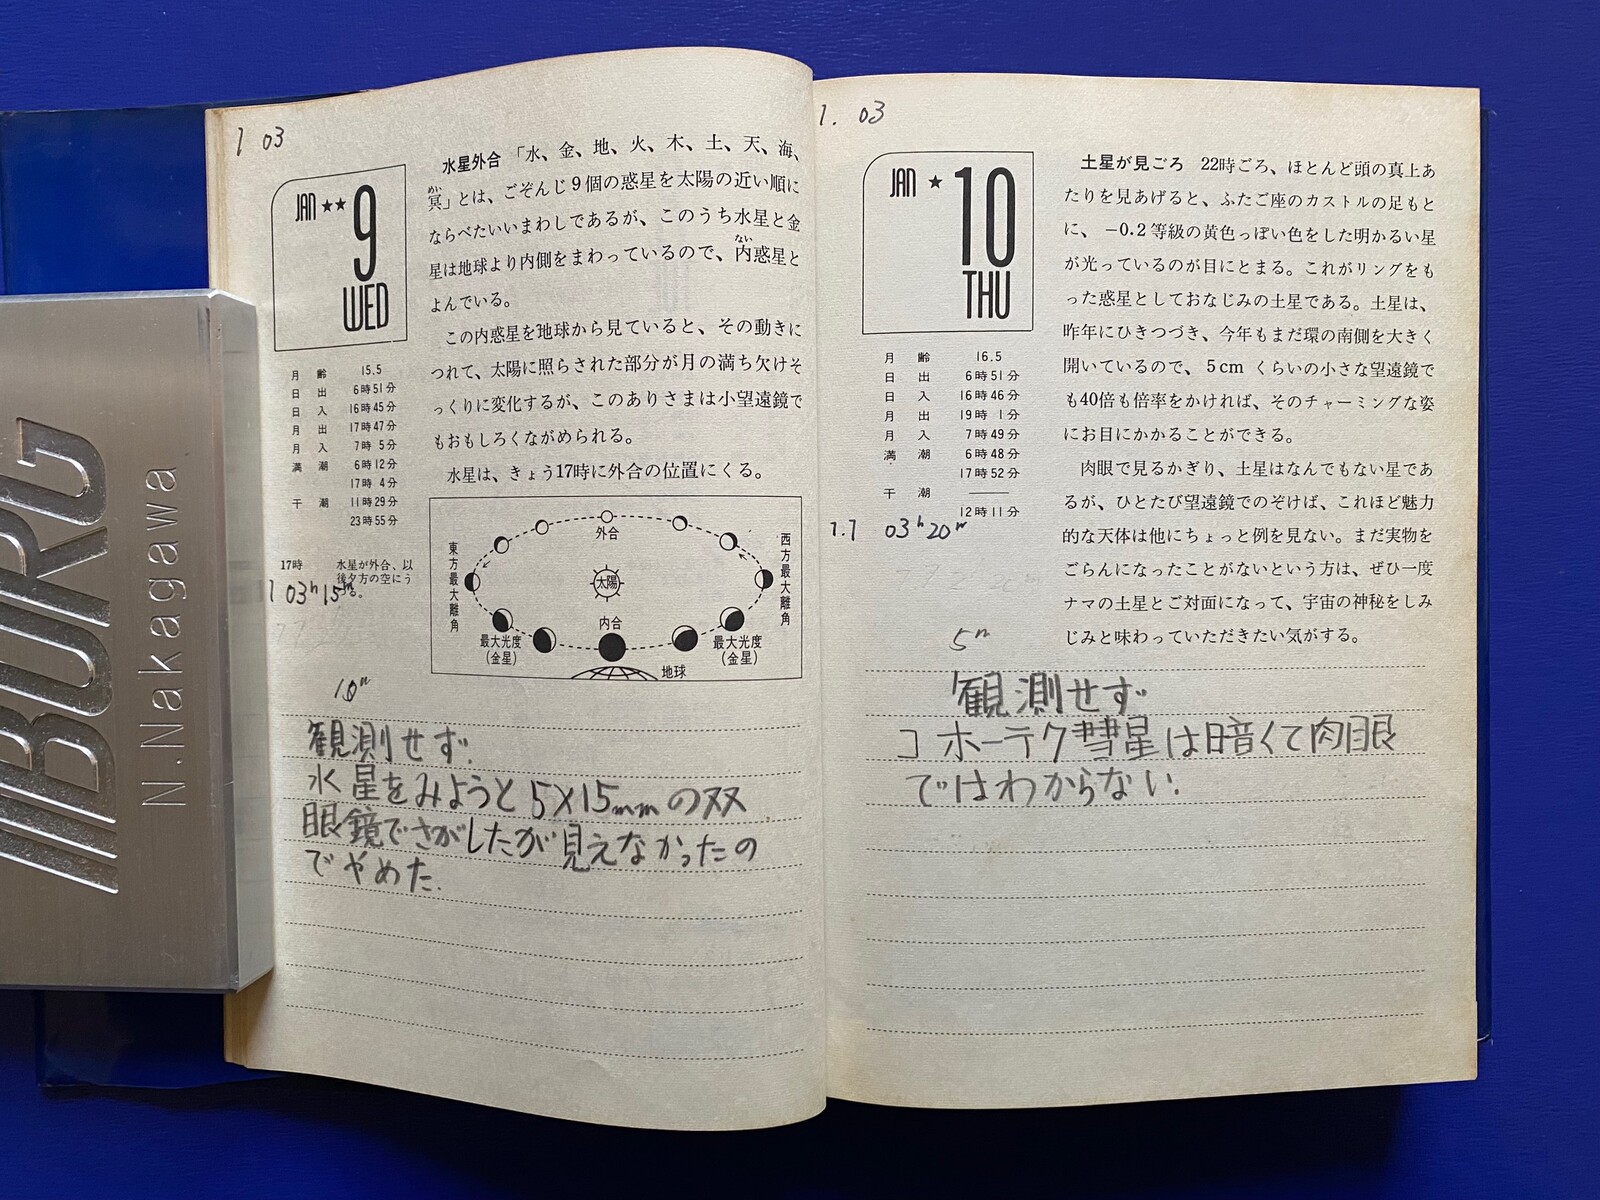 BORG
N.Nakagawa
1 03
JAN ★★
9
WED
月齢 15.5
日出 6時51分
日入 16時45分
月出 17時47分
月入 7時 5分
満潮 6時12分
17時 4分
干潮 11時29分
23時55分
17時 水星が外合、以
後夕方の空にう
1 03h 15m
10m
水星外合 「水、金、地、火、木、土、天、海、
冥」とは、ごぞんじ9個の惑星を太陽の近い順に
めい
ならべたいいまわしであるが、このうち水星と金
星は地球より内側をまわっているので、内惑星と
ない
よんでいる。
この内惑星を地球から見ていると、その動きに
つれて、太陽に照らされた部分が月の満ち欠けそ
っくりに変化するが、このありさまは小望遠鏡で
もおもしろくながめられる。
水星は、きょう17時に外合の位置にくる。
外合
東方最大離角
西方最大離角
太陽
内合
最大光度
(金星)
最大光度
(金星)
地球
観測せず.
水星をみようと5×15mmの双
眼鏡でさがしたが見えなかったの
でやめた.
1. 03
JAN ★
10
THU
月齢 16.5
日出 6時51分
日入 16時46分
月出 19時 1分
月入 7時49分
満潮 6時48分
17時52分
干潮 ———
12時11分
1.1 03h 20m
5m
土星が見ごろ 22時ごろ、ほとんど頭の真上あ
たりを見あげると、ふたご座のカストルの足もと
に、−0.2等級の黄色っぽい色をした明かるい星
が光っているのが目にとまる。これがリングをも
った惑星としておなじみの土星である。土星は、
昨年にひきつづき、今年もまだ環の南側を大きく
開いているので、5cmくらいの小さな望遠鏡で
も40倍も倍率をかければ、そのチャーミングな姿
にお目にかかることができる。
肉眼で見るかぎり、土星はなんでもない星であ
るが、ひとたび望遠鏡でのぞけば、これほど魅力
的な天体は他にちょっと例を見ない。まだ実物を
ごらんになったことがないという方は、ぜひ一度
ナマの土星とご対面になって、宇宙の神秘をしみ
じみと味わっていただきたい気がする。
観測せず
コホーテク彗星は暗くて肉眼
ではわからない.